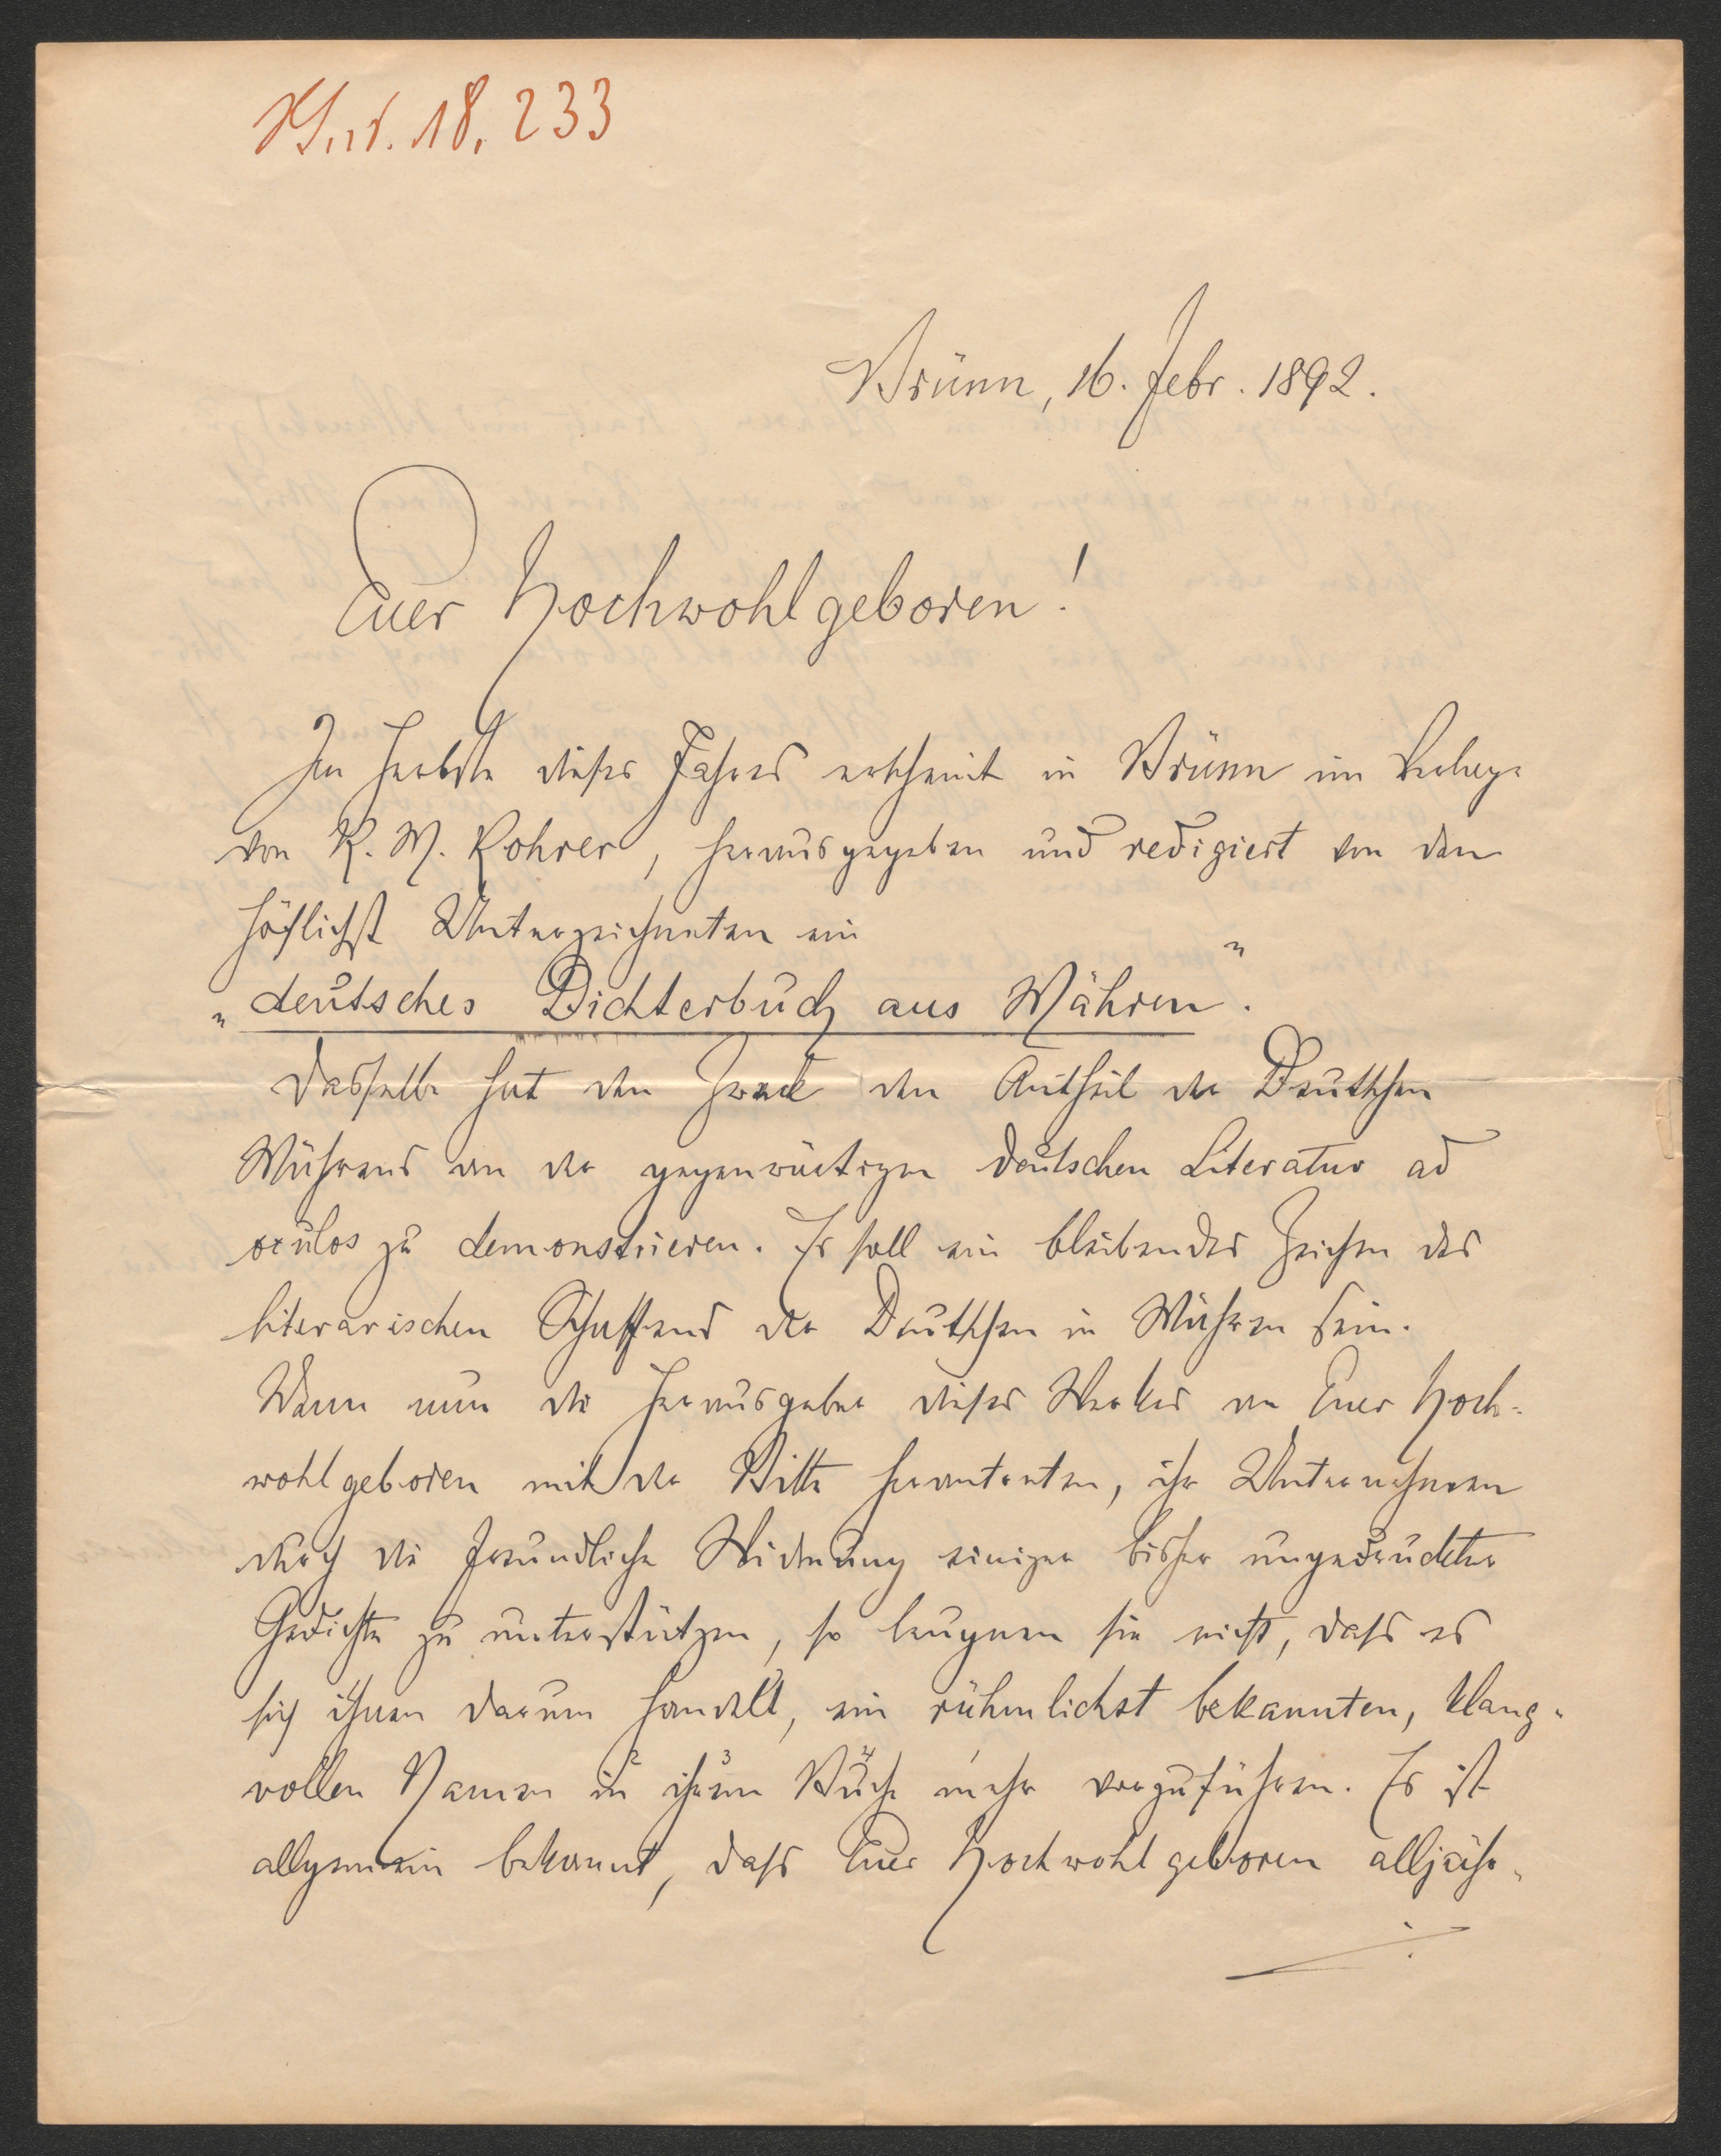 18.233
Brünn, 16. Febr. 1892.
Euer Hochwohlgeboren!
Im Herbste dieses Jahres erscheint in Brünn im Verlage
von R. M. Rohrer, herausgegeben und redigiert von den
höflichst Unterzeichneten ein
„deutsches Dichterbuch aus Mähren“.
Dasselbe hat den Zweck den Antheil der Deutschen
Mährens an der gegenwärtigen deutschen Literatur ad
oculos zu demonstrieren. Es soll ein bleibendes Zeichen des
literarischen Schaffens der Deutschen in Mähren sein.
Wenn nun die Herausgeber dieses Werkes an Euer Hoch-
wohlgeboren mit der Bitte herantreten, ihr Unternehmen
durch die freundliche Widmung einiger bisher ungedruckter
Gedichte zu unterstützen, so leugnen sie nicht, dass es
sich ihnen darum handelt, ein rühmlichst bekannten, klang-
vollen Namen in ihrem Buche mehr vorzuführen. Es ist
allgemein bekannt, dass Euer Hochwohlgeboren alljähr-